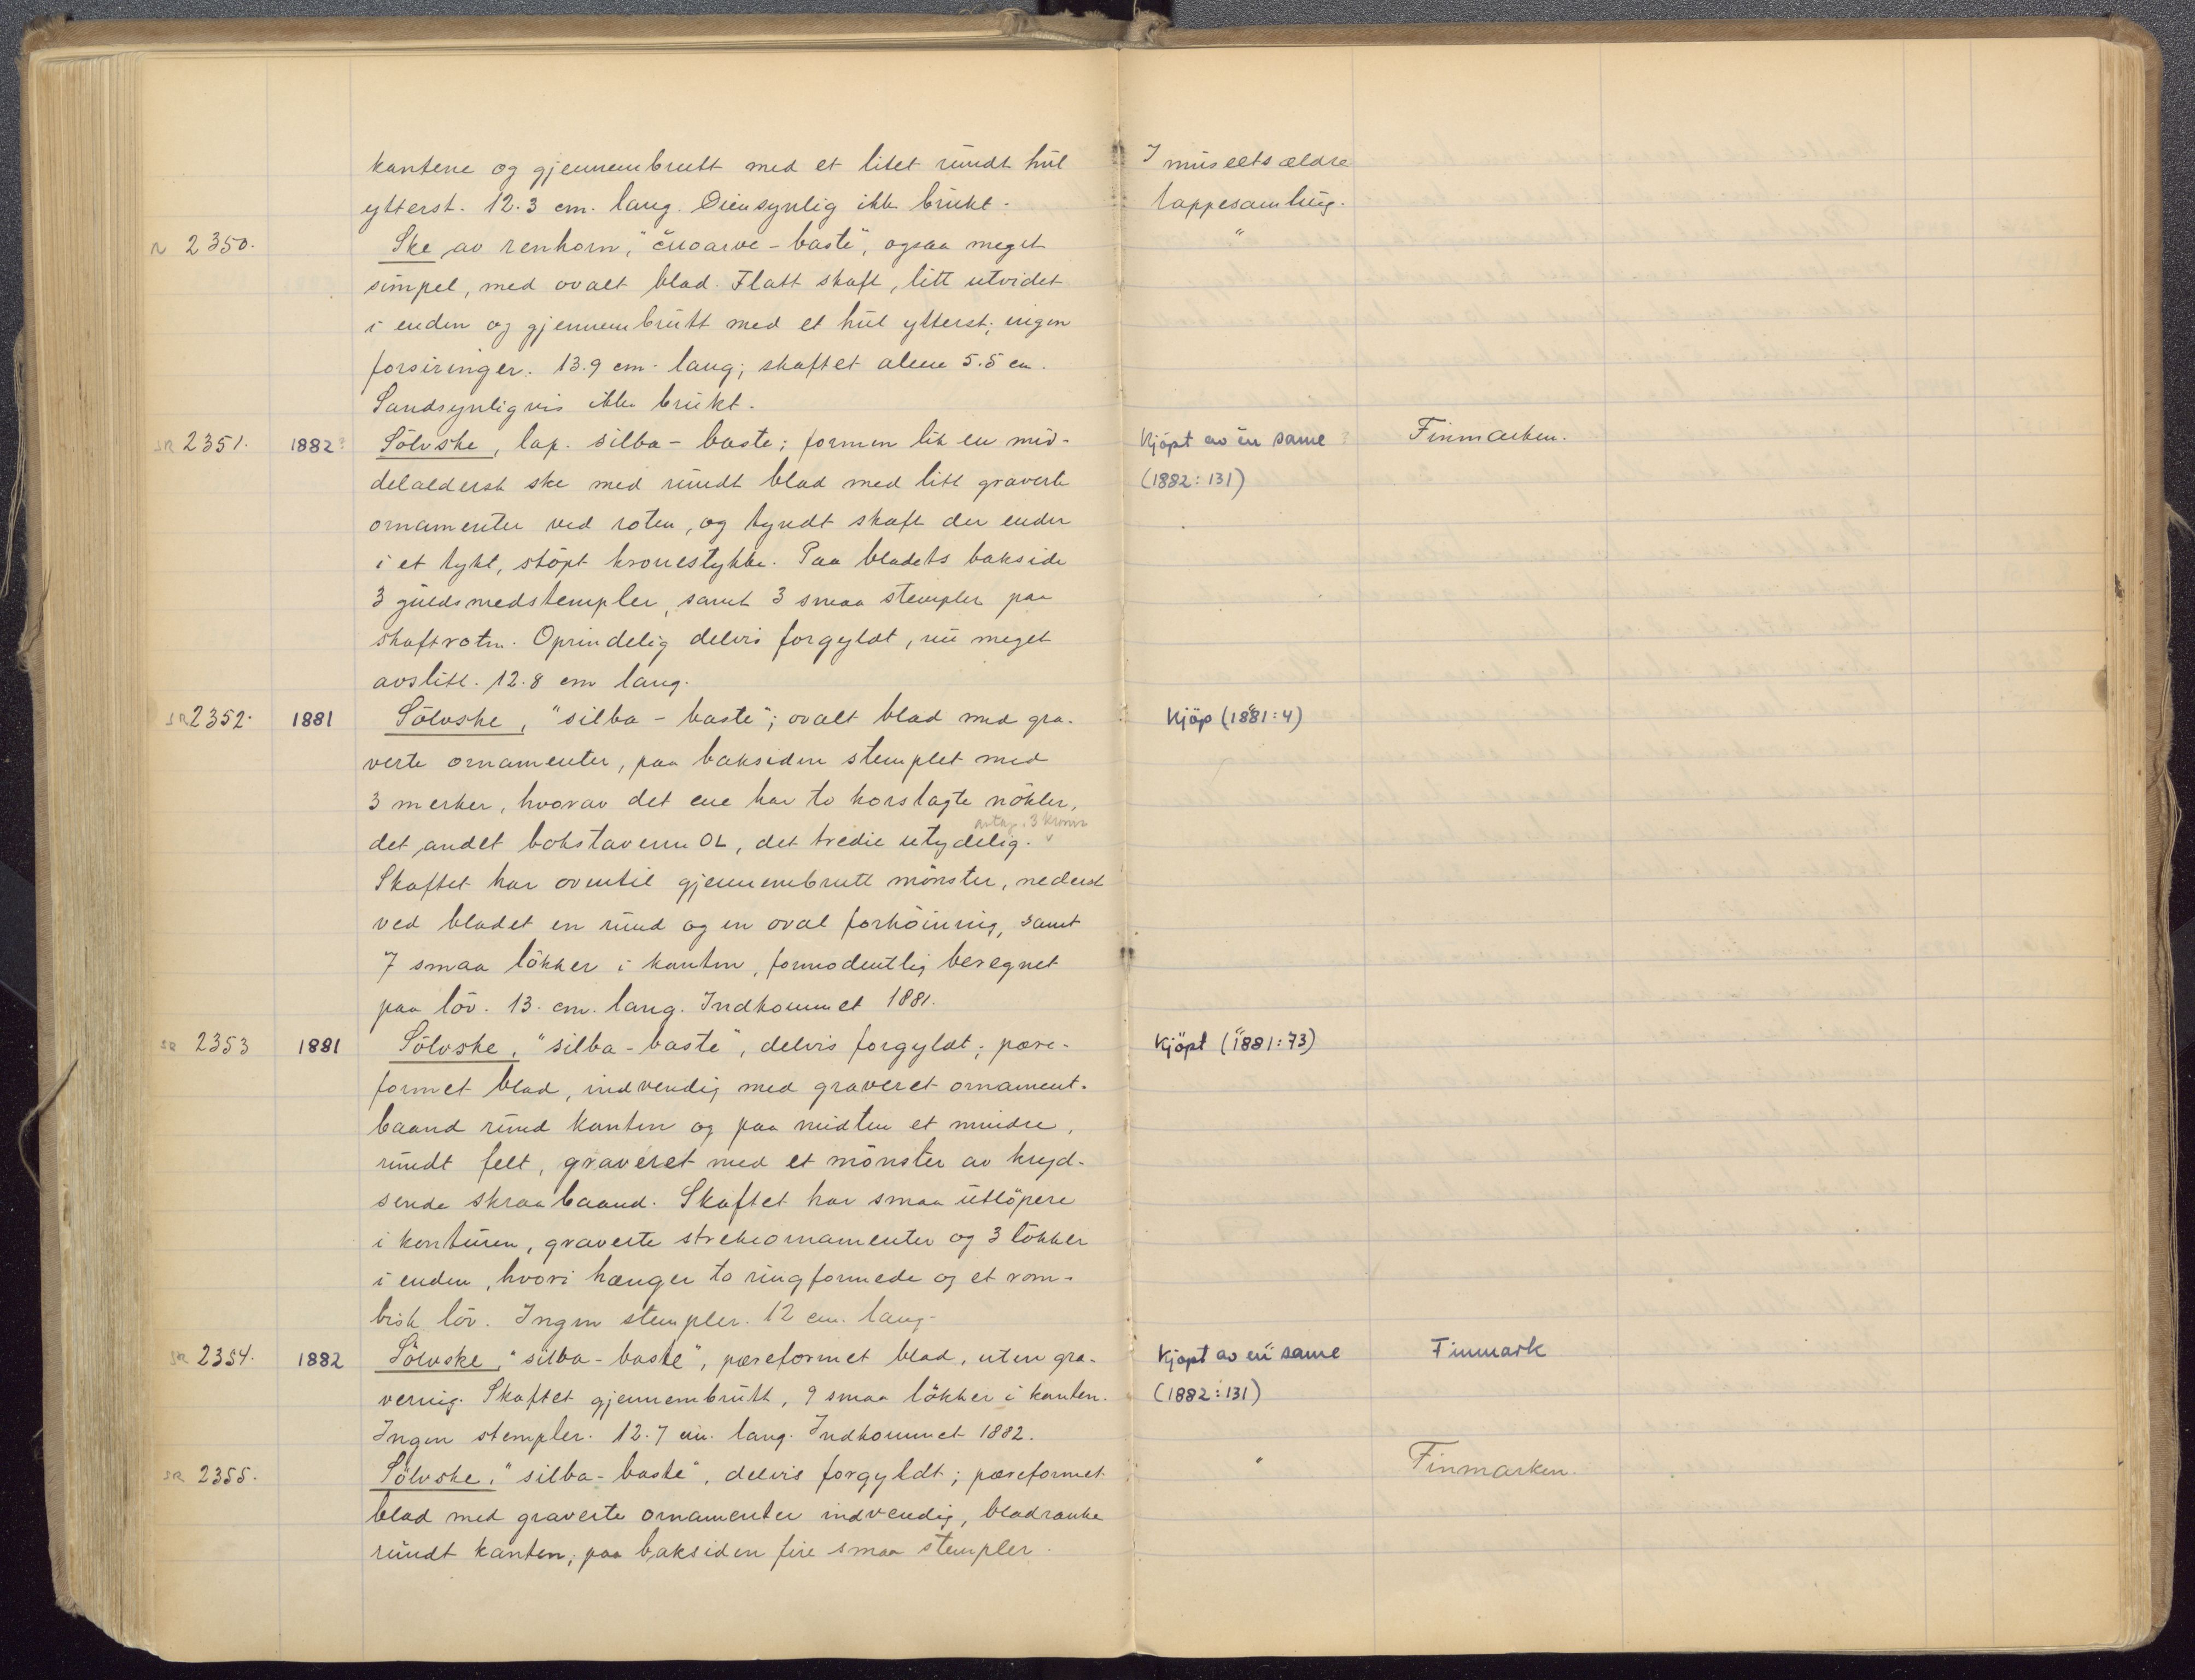 kantene og gjennembrutt med et litet rundt hul I museets ældre
ytterst. 12.3 cm. lang. Øiensynlig ikke brukt. lappesamling.
R 2350. Ske av renhorn, "čuoarve-baste", ogsaa meget "
simpel, med ovalt blad. Flatt skaft, litt utvidet
i enden og gjennembrutt med et hul ytterst; ingen
forsiringer. 13.9 cm. lang; skaftet alene 5.5 cm.
Sandsynligvis ikke brukt.
SR 2351. 1882? Sölvske, lap. silba-baste; formen lik en mid- Kjöpt av en same ? Finmarken.
delaldersk ske med rundt blad med litt graverte (1882:131)
ornamenter ved roten, og tyndt skaft der ender
i et tykt, stöpt kronestykke. Paa bladets bakside
3 guldsmedstempler, samt 3 smaa stempler paa
skaftroten. Oprindelig delvis forgyldt, nu meget
avslitt. 12.8 cm lang.
SR 2352. 1881 Sölvske, "silba-baste"; ovalt blad med gra- Kjöp (1881:4)
verte ornamenter, paa baksiden stemplet med
3 merker, hvorav det ene har to korslagte nökler,
antag. 3 kroner
det andet bokstavene OL, det tredie utydelig. v
Skaftet har oventil gjennembrutt mönster, nederst
ved bladet en rund og en oval forhöining, samt
7 smaa lökker i kanten, formodentlig beregnet
paa löv. 13. cm. lang. Indkommet 1881.
SR 2353 1881 Sölvske, "silba-baste", delvis forgyldt; pære- Kjöpt (1881:73)
formet blad, indvendig med graveret ornament-
baand rund kanten og paa midten et mindre,
rundt felt, graveret med et mönster av kryd-
sende skraabaand. Skaftet har smaa utlöpere
i konturen, graverte strekornamenter og 3 lökker
i enden, hvori hænger to ringformede og et rom-
bisk löv. Ingen stempler. 12 cm. lang.
SR 2354. 1882 Sölvske, "silba-baste", pæreformet blad, uten gra- Kjöpt av en same Finmark
vering. Skaftet gjennembrutt, 9 smaa lökker i kanten. (1882:131)
Ingen stempler. 12.7 cm. lang. Indkommet 1882.
SR 2355. Sölvske, "silba-baste", delvis forgyldt; pæreformet " Finmarken.
blad med graverte ornamenter indvendig, bladranke
rundt kanten; paa baksiden fire smaa stempler.